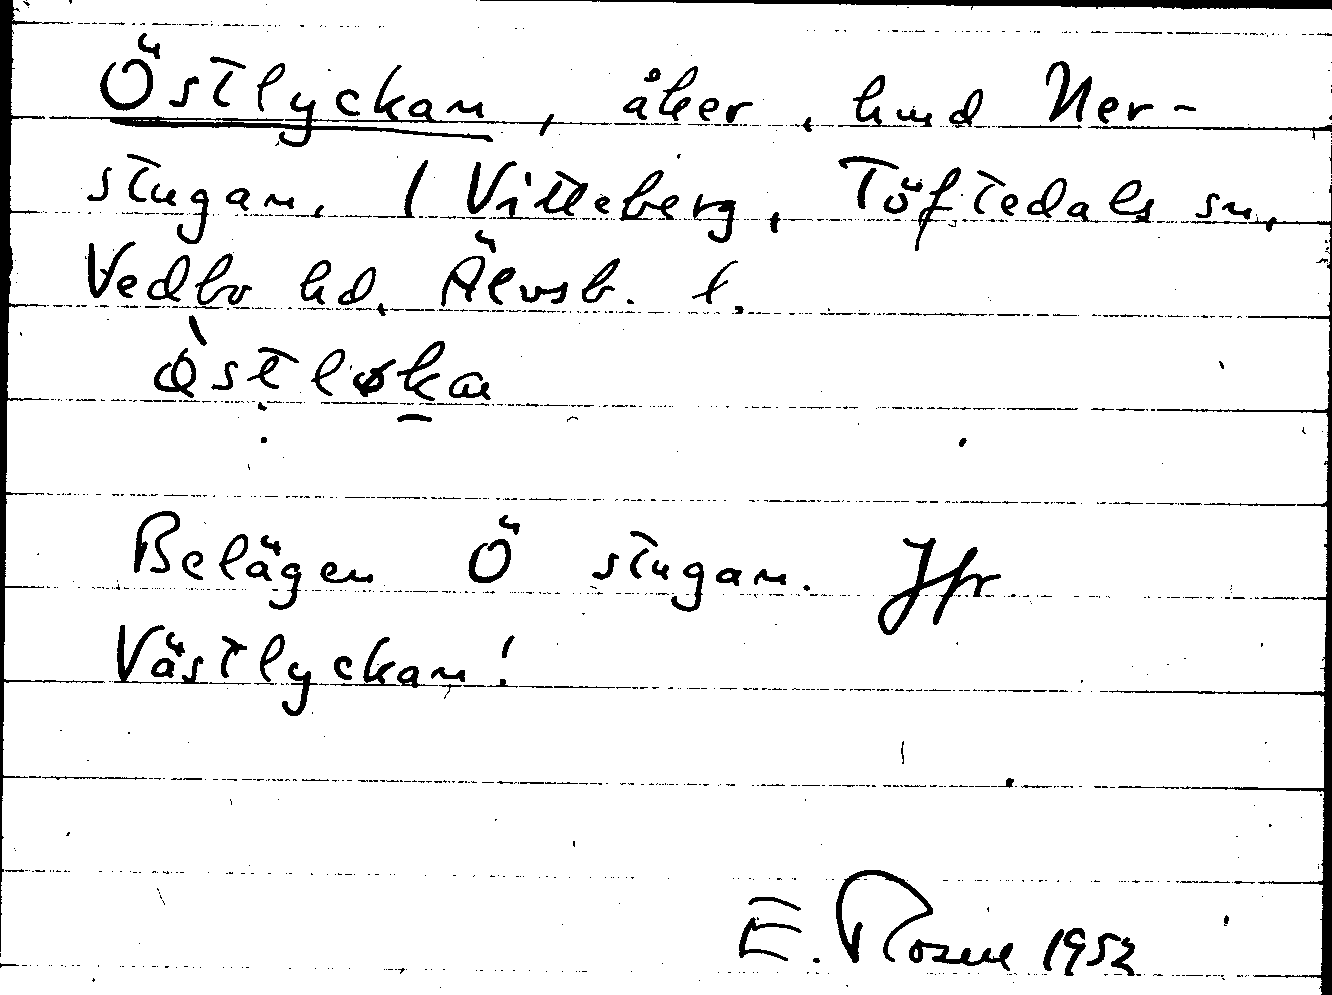 Östlyckan, åker, hmd Ner-
stugan, 1 Vitteberg, Töftedals sn,
Vedbo hd, Älvsb. l.
Belägen Ö stugan. Jfr
Västlyckan!
E. Rosell 1952